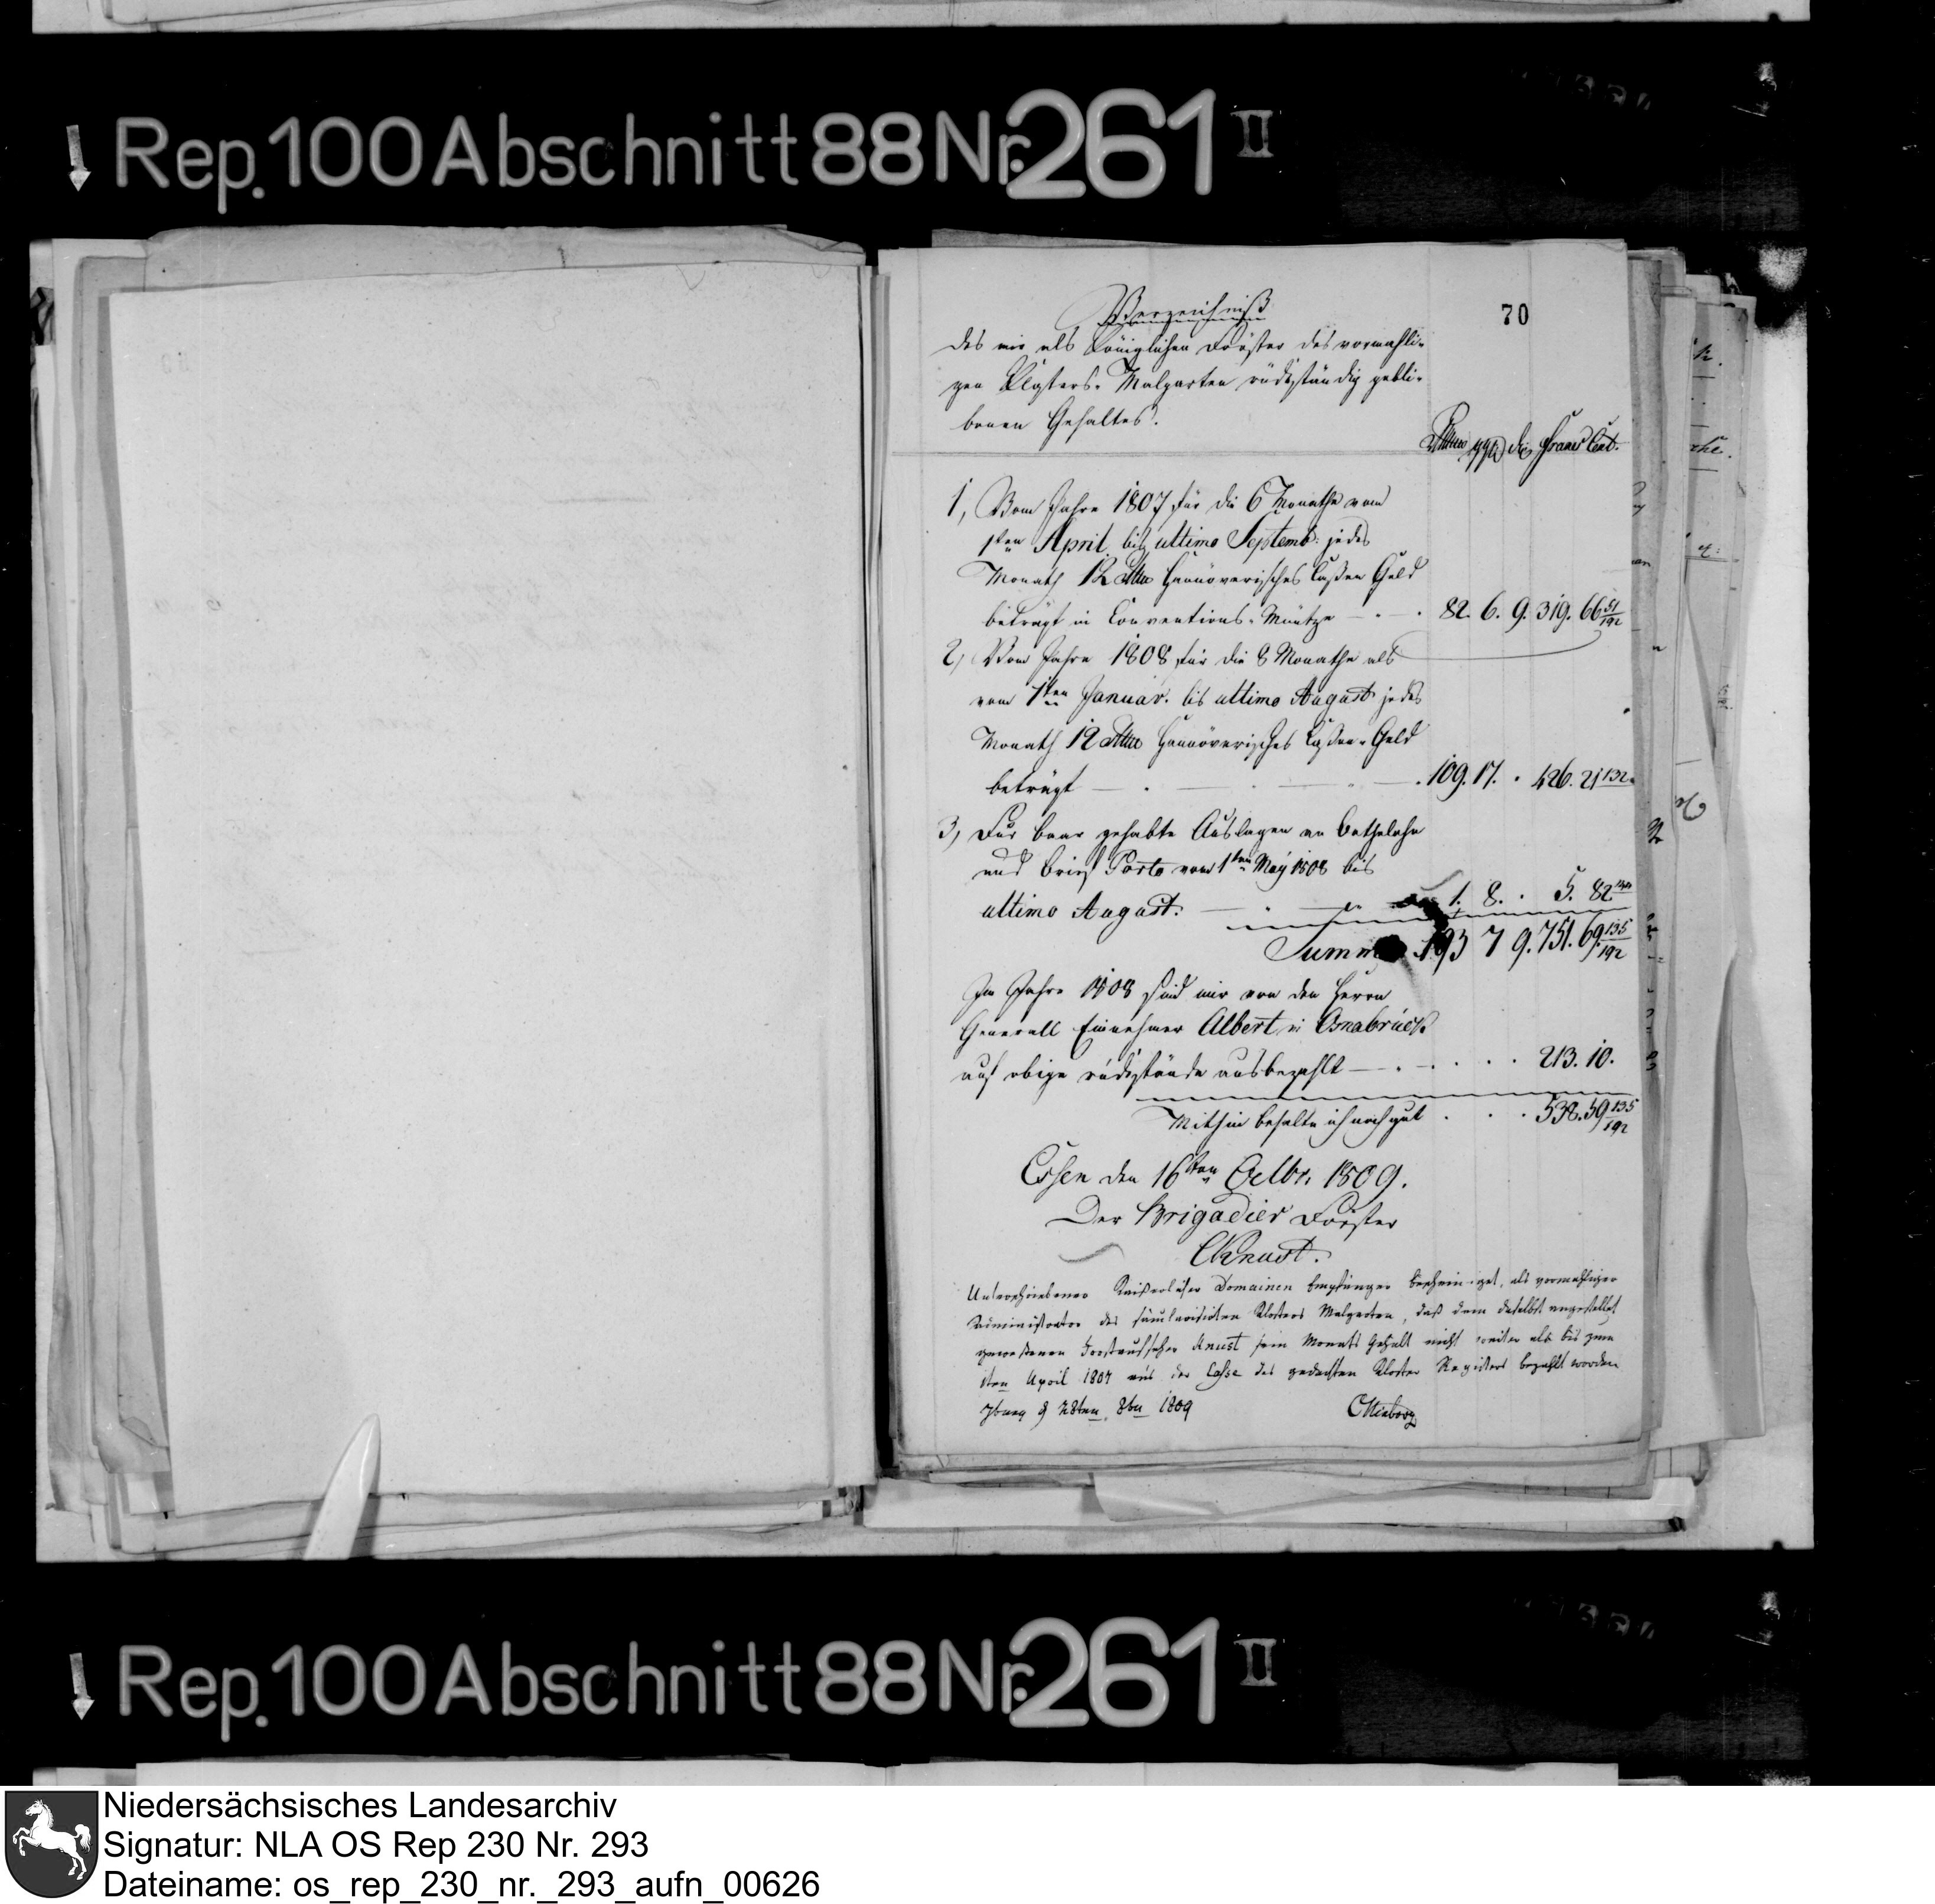 Rep. 100 Abschnitt 88 Nr. 261 II
70
Verzeichniß
des mir als Königlichen Förster des vormahli-
gen Klosters-Malgarten rückständig gebli-
benen Gehaltes.
ggl d Francs Cent.
1, Vom Jahre 1807 für die 6 Monathe vom
1ten April bis ultimo Septemb: jedes
Monath 12 Hannöverisches Caßen Geld
beträgt in Conventions-Müntze 82. 6. 9. 319. 66 51/192
2, Vom Jahre 1808 für die 8 Monathe als
vom 1ten Januar. bis ultimo August jedes
Monath 12 Hannöverisches Caßen-Geld
beträgt 109. 17. 426. 21 132
3, Für baar gehabte Auslagen an Bothelohn
und Brief Porto vom 1ten May 1808 bis
ultimo August. 1. 8. 5. 82 144
Summa 193 7 9. 751. 69 135/192
Im Jahre 1808 sind mir von den Herrn
Generall Einnehmer Albert in Osnabrück
auf obige rückstände ausbezahlt 213. 10.
Mithin behalte ich noch gut 538. 59 135/192
Essen den 16ten Octbr. 1809.
Der Brigadier Förster
CKnust.
Unterschriebener Kaiserlicher Domainen Empfänger bescheiniget, als vormahliger
Administrator des säcularisirten Klosters Malgarten, daß dem daselbst angestellt
gewesenen Forstaufseher Knust sein Monats Gehalt nicht weiter als bis zum
1ten April 1807 aus der Casse des gedachten Kloster Registers bezahlt worden
Iburg d 28ten 8br 1809
Rep. 100 Abschnitt 88 Nr. 261 II
Niedersächsisches Landesarchiv
Signatur: NLA OS Rep 230 Nr. 293
Dateiname: os_rep_230_nr._293_aufn_00626